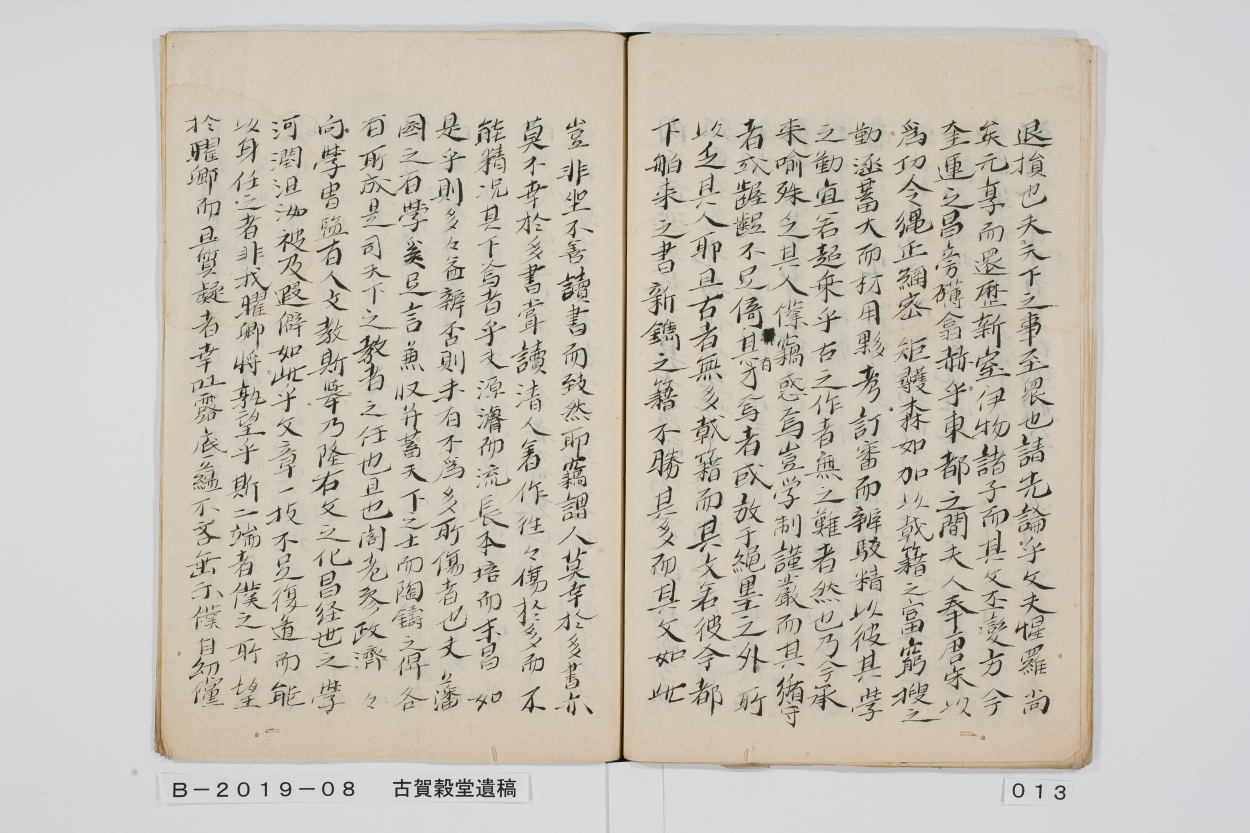 退損也夫天下之事至衆也請先論乎文夫惺羅尚
矣元享而還歴新室伊物諸子而其文丕變方今
奎運之昌旁礴翕赫乎東都之間夫人奉唐宋以
爲功令繩正網密矩矱森如加以載籍之富窮搜之
勤涵蓄大而材用夥考訂審而辨駁精以彼其學
之勤宜若超乘乎古之作者無之難者然也乃今承
来喻殊乏其人僕竊惑焉豈学制謹嚴而其循守
者或齷齪不足倚其有才爲者或放于繩墨之外所
以乏其人耶且古者無多載籍而其文若彼今都
下舶来之書新鐫之籍不勝其多而其文如此
豈非坐不善讀書而致然耶竊謂人莫幸於多書亦
莫不幸於多書嘗讀清人著作徃々傷於多而不
能精况其下焉者乎夫源濬而流長本培而末昌如
是乎則多々益辨否則未有不爲多所傷者也夫藩
國之有學奚足言兼収并蓄天下之士而陶鑄之俾各
有所成是司天下之教者之任也且也閣老參政濟々
向學胄監有人文教斯舉乃隆右文之化昌経世之學
河潤沮洳被及遐僻如此乎文章一技不足復道而能
以身任之者非我臞卿将孰望乎斯二端者僕之所望
於臞卿而且質疑者幸吐露底蘊不吝垂示僕自幼僮
B−2019−08 古賀穀堂遺稿
013